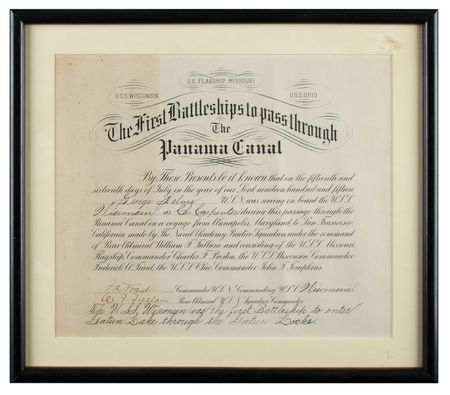 U.S. FLAGSHIP, MISSOURI
U.S.S. WISCONSIN U.S.S. OHIO
The First Battleships to pass through
The
Panama Canal
By These Presents be it known that on the fifteenth and
sixteenth days of July in the year of our Lord nineteen hundred and fifteen
George U.S.N. was serving on board the U.S.S.
Wisconsin as Carpenter during this passage through the
Panama Canal on a voyage from Annapolis, Maryland, to San Francisco,
California, made by The Naval Academy Practice Squadron under the command
of Rear Admiral William F. Fullam and consisting of the U.S.S. Missouri,
Flagship, Commander Charles F. Preston, the U.S.S. Wisconsin, Commander
Frederick A. Traut, the U.S.S. Ohio, Commander John T. Tompkins.
Traut Commander U.S.N. Commanding U.S.S. Wisconsin
Rear Admiral U.S.N. Squadron Commander
The U.S.S. Wisconsin was the first Battleship to enter
Gatun Lake through the Gatun Locks.